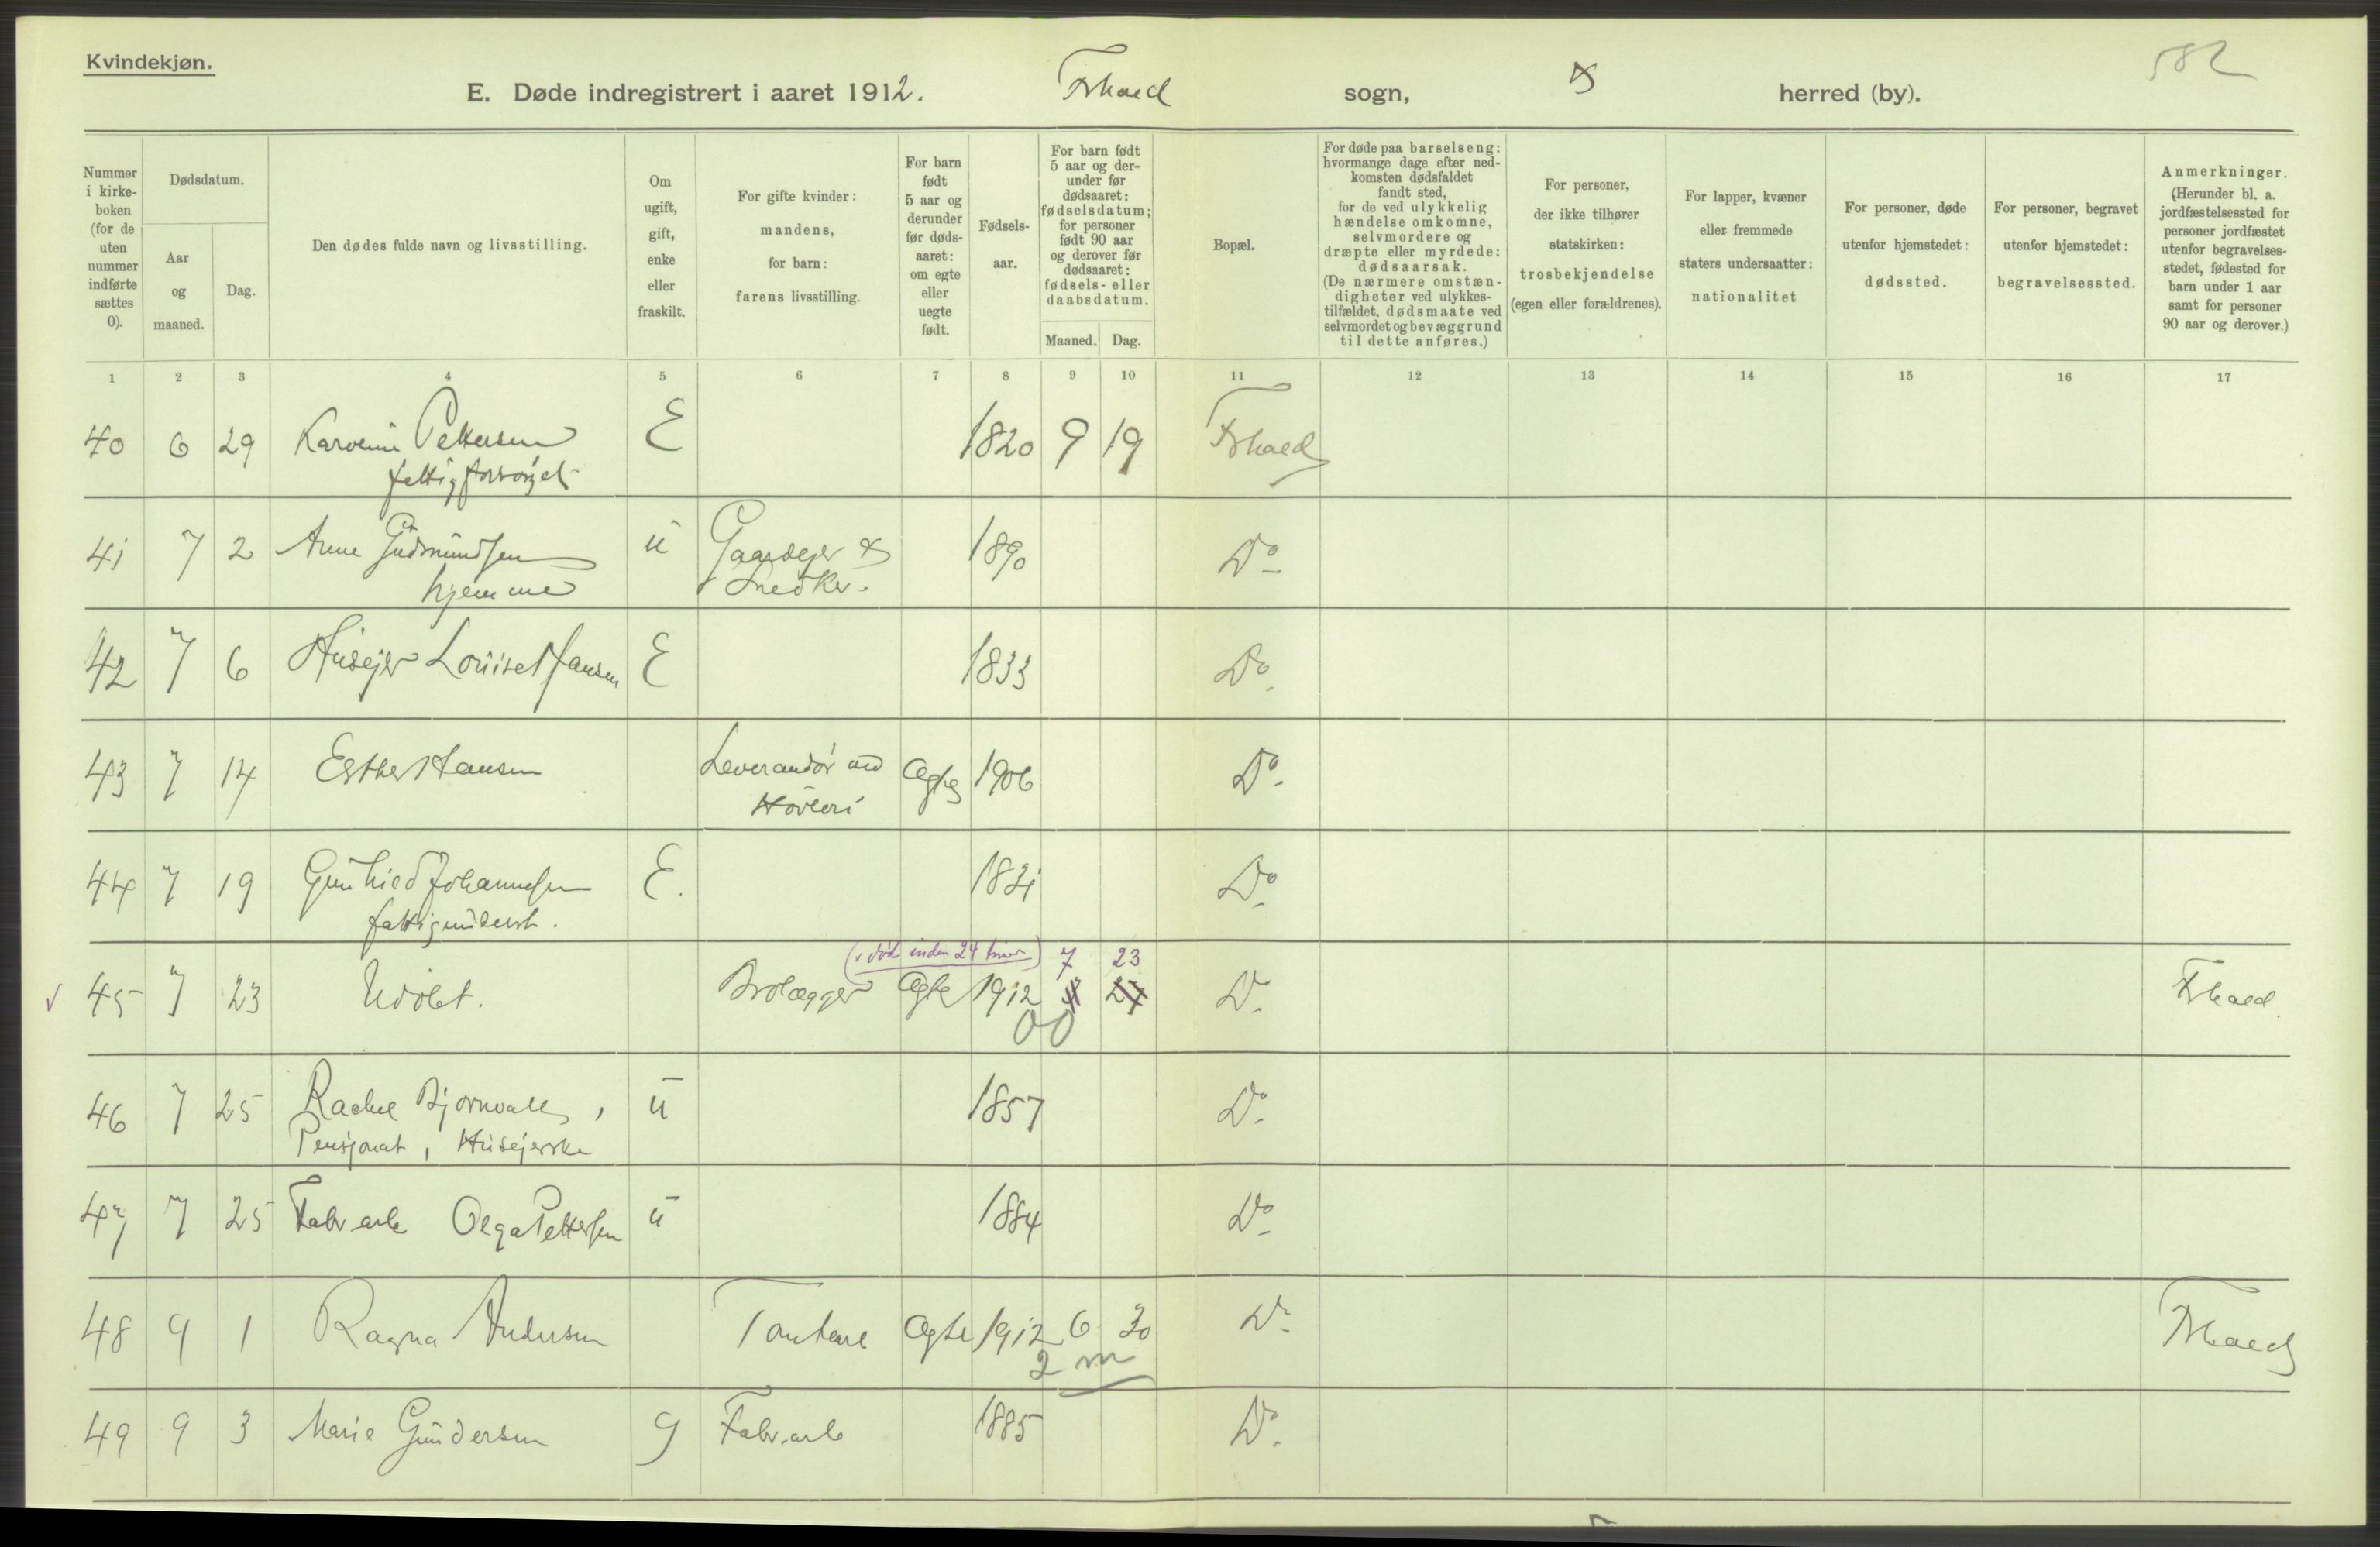 Kvindekjøn.
582
E. Døde indregistrert i aaret 1912. Frhald sogn, herred (by).
Nummer i kirke-boken (for de uten nummer indførte sættes 0).
Dødsdatum.
Aar og maaned.
Dag.
Den dødes fulde navn og livsstilling.
Om ugift, gift, enke eller fraskilt.
For gifte kvinder: mandens, for barn: farens livsstilling.
For barn født 5 aar og derunder før døds-aaret: om egte eller uegte født.
Fødsels-aar.
For barn født 5 aar og der-under før dødsaaret: fødselsdatum; for personer født 90 aar og derover før dødsaaret: fødsels- eller daabsdatum.
Maaned.
Dag.
Bopæl.
For døde paa barselseng: hvormange dage efter ned-komsten dødsfaldet fandt sted, for de ved ulykkelig hændelse omkomne, selvmordere og dræpte eller myrdede: dødsaarsak. (De nærmere omstæn-digheter ved ulykkes-tilfældet, dødsmaate ved selvmordet og bevæggrund til dette anføres.)
For personer, der ikke tilhører statskirken: trosbekjendelse (egen eller forældrenes).
For lapper, kvæner eller fremmede staters undersaatter: nationalitet
For personer, døde utenfor hjemstedet: dødssted.
For personer, begravet utenfor hjemstedet: begravelsessted.
Anmerkninger. (Herunder bl. a. jordfæstelsessted for personer jordfæstet utenfor begravelses-stedet, fødested for barn under 1 aar samt for personer 90 aar og derover.)
1 2 3 4 5 6 7 8 9 10 11 12 13 14 15 16 17
40 6 29 Pettersen E 1820 9 19 Frhald
fattigforsørget
41 7 2 Anne Gudmundsen u Gaardejer & 1890 Do
hjemme Snedker.
42 7 6 Husejer Louise Hansen E 1833 Do
43 7 14 Esther Hansen Leverandør ved Ægte 1906 Do
Høvleri
44 7 19 Gunhild Johannesen E. 1821 Do
fattigunderst.
(v død inden 24 timer) 7 23
45 7 23 Udøbt. Brolægger Ægte 1912 Do Frhald
00
46 7 25 Rachel Bjornvall, u 1857 Do
Pensjonat, Husejerske
47 7 25 Fabr.arb Olga Pettersen u 1884 Do
48 9 1 Ragna Andersen Ægte 1912 6 30 Do Frhald
2 m
49 9 3 Marie Gundersen g Fabr.arb 1885 Do